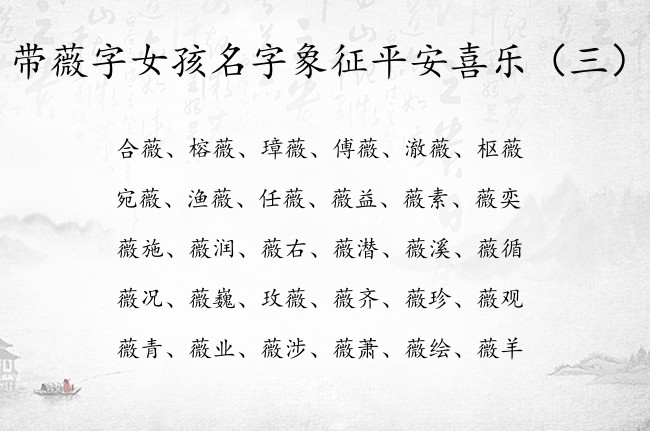 带薇字女孩名字象征平安喜乐（三）
合薇、榕薇、璋薇、傅薇、澈薇、枢薇
宛薇、渔薇、任薇、薇益、薇素、薇奕
薇施、薇润、薇右、薇潜、薇溪、薇循
薇况、薇巍、玫薇、薇齐、薇珍、薇观
薇青、薇业、薇涉、薇萧、薇绘、薇羊